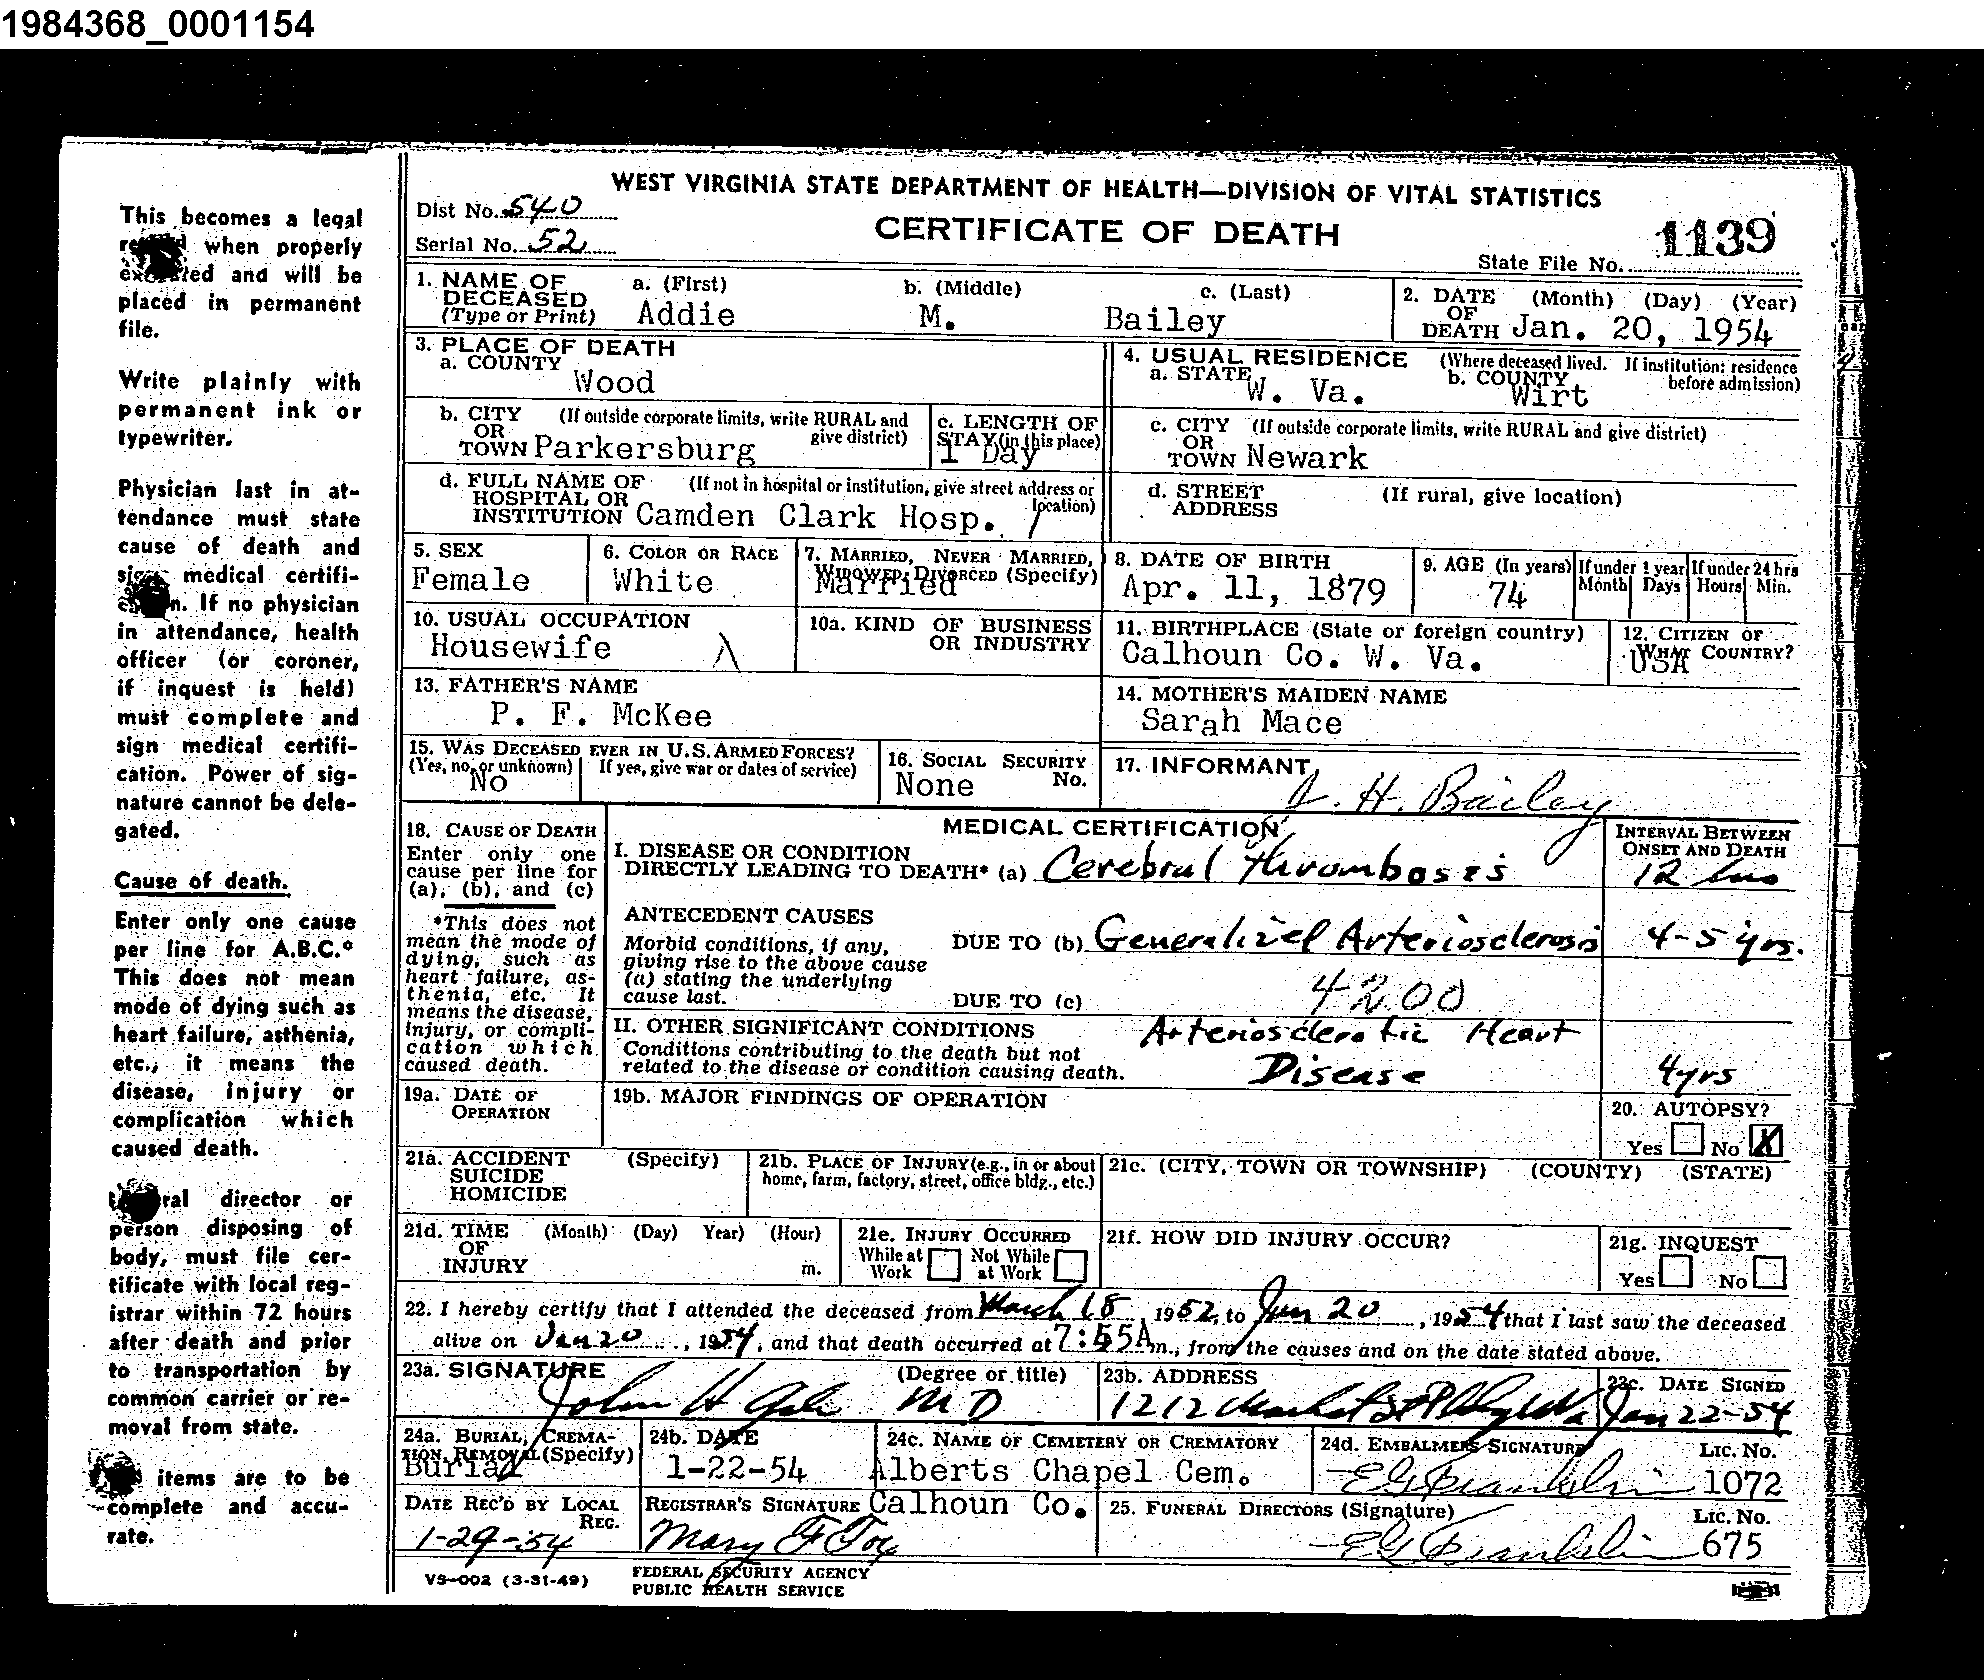 1984368_0001154
WEST VIRGINIA STATE DEPARTMENT OF HEALTH—DIVISION OF VITAL STATISTICS
Dist No. 540
CERTIFICATE OF DEATH
1139
Serial No. 52
State File No.
This becomes a legal
when properly
and will be
placed in permanent
file.
Write plainly with
permanent ink or
typewriter.
Physician last in at-
tendance must state
cause of death and
medical certifi-
If no physician
in attendance, health
officer (or coroner,
if inquest is held)
must complete and
sign medical certifi-
cation. Power of sig-
nature cannot be dele-
gated.
Cause of death.
Enter only one cause
per line for A.B.C.*
This does not mean
mode of dying such as
heart failure, asthenia,
etc., it means the
disease, injury or
complication which
caused death.
director or
person disposing of
body, must file cer-
tificate with local reg-
istrar within 72 hours
after death and prior
to transportation by
common carrier or re-
moval from state.
items are to be
complete and accu-
rate.
1. NAME OF DECEASED (Type or Print)
a. (First) Addie
b. (Middle) M.
c. (Last) Bailey
2. DATE OF DEATH (Month) (Day) (Year) Jan. 20, 1954
3. PLACE OF DEATH
a. COUNTY Wood
4. USUAL RESIDENCE (Where deceased lived. If institution: residence before admission)
a. STATE W. Va.
b. COUNTY Wirt
b. CITY OR TOWN (If outside corporate limits, write RURAL and give district) Parkersburg
c. LENGTH OF STAY (in this place) 1 Day
c. CITY OR TOWN (If outside corporate limits, write RURAL and give district) Newark
d. FULL NAME OF HOSPITAL OR INSTITUTION (If not in hospital or institution, give street address or location) Camden Clark Hosp.
d. STREET ADDRESS (If rural, give location)
5. SEX Female
6. COLOR OR RACE White
7. MARRIED, NEVER MARRIED, WIDOWED, DIVORCED (Specify) Married
8. DATE OF BIRTH Apr. 11, 1879
9. AGE (In years) 74
If under 1 year Month Days
If under 24 hrs Hours Min.
10. USUAL OCCUPATION Housewife
10a. KIND OF BUSINESS OR INDUSTRY
11. BIRTHPLACE (State or foreign country) Calhoun Co. W. Va.
12. CITIZEN OF WHAT COUNTRY? USA
13. FATHER'S NAME P. F. McKee
14. MOTHER'S MAIDEN NAME Sarah Mace
15. WAS DECEASED EVER IN U.S. ARMED FORCES? (Yes, no, or unknown) No
If yes, give war or dates of service)
16. SOCIAL SECURITY No. None
17. INFORMANT H. Bailey
18. CAUSE OF DEATH
Enter only one cause per line for (a), (b), and (c)
*This does not mean the mode of dying, such as heart failure, asthenia, etc. It means the disease, injury, or complication which caused death.
MEDICAL CERTIFICATION
INTERVAL BETWEEN ONSET AND DEATH
I. DISEASE OR CONDITION DIRECTLY LEADING TO DEATH* (a) Cerebral thrombosis 12 hrs
ANTECEDENT CAUSES
Morbid conditions, if any, giving rise to the above cause (a) stating the underlying cause last.
DUE TO (b) Generalized Arteriosclerosis 4-5 yrs.
DUE TO (c) 4200
II. OTHER SIGNIFICANT CONDITIONS
Conditions contributing to the death but not related to the disease or condition causing death.
Arteriosclerotic Heart Disease 4 yrs
19a. DATE OF OPERATION
19b. MAJOR FINDINGS OF OPERATION
20. AUTOPSY? Yes No X
21a. ACCIDENT SUICIDE HOMICIDE (Specify)
21b. PLACE OF INJURY (e.g., in or about home, farm, factory, street, office bldg., etc.)
21c. (CITY, TOWN OR TOWNSHIP) (COUNTY) (STATE)
21d. TIME OF INJURY (Month) (Day) Year) (Hour) m.
21e. INJURY OCCURRED While at Work Not While at Work
21f. HOW DID INJURY OCCUR?
21g. INQUEST Yes No
22. I hereby certify that I attended the deceased from March 18, 1952, to Jan 20, 1954 that I last saw the deceased
alive on Jan 20, 1954, and that death occurred at 7:55A m., from the causes and on the date stated above.
23a. SIGNATURE (Degree or title) John H M D
23b. ADDRESS 1212 Market St
23c. DATE SIGNED Jan 22-54
24a. BURIAL, CREMATION, REMOVAL (Specify) Burial
24b. DATE 1-22-54
24c. NAME OF CEMETERY OR CREMATORY Alberts Chapel Cem.
Calhoun Co.
24d. EMBALMERS SIGNATURE E G Franklin
LIC. NO. 1072
DATE REC'D BY LOCAL REG. 1-29-54
REGISTRAR'S SIGNATURE Mary F Fox
25. FUNERAL DIRECTORS (Signature) E G Franklin
LIC. NO. 675
VS-002 (3-31-49)
FEDERAL SECURITY AGENCY
PUBLIC HEALTH SERVICE